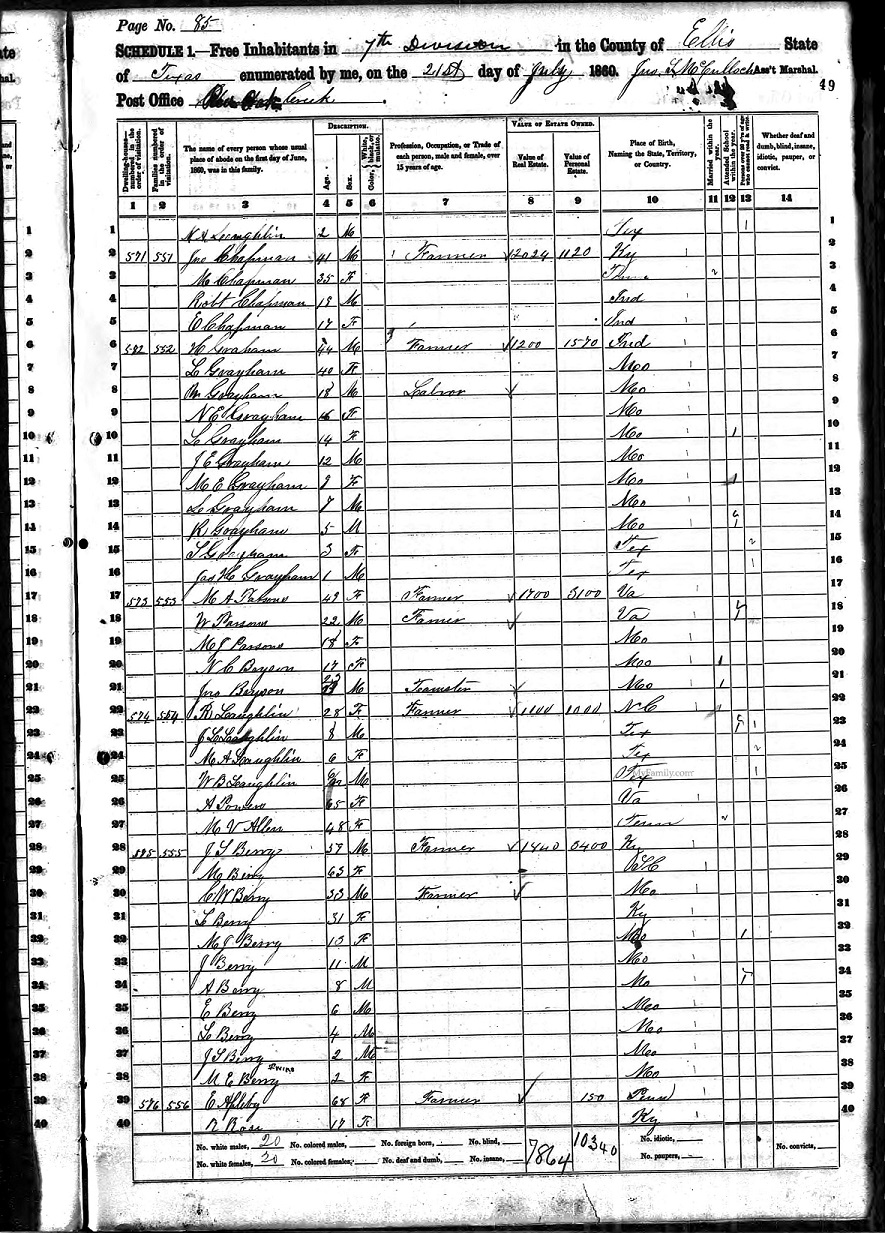 Page No. 85
SCHEDULE 1.—Free Inhabitants in 7th Division in the County of Ellis State
of Texas enumerated by me, on the 21st day of July 1860. Jno. L. McCulloch Ass't Marshal.
49
Post Office Creek.
DESCRIPTION. VALUE OF ESTATE OWNED.
Dwelling-houses—numbered in the order of visitation. Families numbered in the order of visitation. The name of every person whose usual place of abode on the first day of June, 1860, was in this family. Age. Sex. Color, White, black, or mulatto. Profession, Occupation, or Trade of each person, male and female, over 15 years of age. Value of Real Estate. Value of Personal Estate. Place of Birth, Naming the State, Territory, or Country. Married within the year. Attended School within the year. Persons over 20 y'rs of age who cannot read & write. Whether deaf and dumb, blind, insane, idiotic, pauper, or convict.
1 2 3 4 5 6 7 8 9 10 11 12 13 14
1 Laughlin 2 M Tex 1
2 571 551 Jno Chapman 41 M Farmer 2024 1120 Ky 2
3 M Chapman 35 F 3
4 Robt Chapman 18 M Ind 4
5 E Chapman 17 F Ind 5
6 552 H Graham 44 M Farmer 1200 1570 Ind 6
7 L Grayham 40 F Mo 7
8 Wm Grayham 18 M Labror Mo 8
9 N E Grayham 16 F Mo 9
10 L Grayham 14 F Mo 1 10
11 J E Grayham 12 M Mo 11
12 M E Grayham 9 F Mo 1 12
13 L Grayham 7 M Mo 13
14 R Grayham 5 M Mo 14
15 S Grayham 3 F Tex 15
16 Jas H Grayham 1 M Tex 16
17 573 553 M A Parsons 49 F Farmer 1700 3100 Va 17
18 W Parsons 22 M Farmer Va 18
19 M J Parsons 18 F Mo 19
20 N C Bryson 17 F Mo 1 20
21 Jno Bryson 23 M Teamster Mo 1 21
22 574 554 R Laughlin 28 F Farmer 1000 N C 22
23 J L Laughlin 8 M Tex 23
24 M A Laughlin 6 F Tex 24
25 W B Laughlin M Tex 25
MyFamily.com
26 A Powers 65 F Va 26
27 M V Allen 48 F Tenn 27
28 555 J S Berry 59 M Farmer 1440 Ky 28
29 M Berry 63 F 29
30 C W Berry 33 M Farmer Mo 30
31 L Berry 31 F Ky 31
32 M J Berry 13 F Mo 1 32
33 J Berry 11 M Mo 33
34 A Berry 8 M Mo 34
35 E Berry 6 M Mo 35
36 L Berry 4 M Mo 36
37 J S Berry 2 M Mo 37
38 M E Berry Twins 2 F Mo 38
39 576 556 E Apleby 68 F Farmer 150 Penn 39
40 17 F Ky 40
No. white males, 20 No. colored males, No. foreign born, No. blind, 7864 10340 No. idiotic, No. convicts,
No. white females, 20 No. colored females, No. deaf and dumb, No. insane, No. paupers,